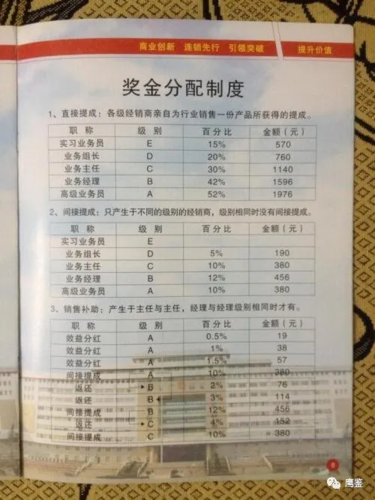 商业创新 连锁先行 引领突破 提升价值
奖金分配制度
1、直接提成：各级经销商亲自为行业销售一份产品所获得的提成。
职 称 级 别 百 分 比 金 额（元）
实习业务员 E 15% 570
业务组长 D 20% 760
业务主任 C 30% 1140
业务经理 B 42% 1596
高级业务员 A 52% 1976
2、间接提成：只产生于不同的级别的经销商，级别相同时没有间接提成。
职 称 级 别 百 分 比 金 额（元）
实习业务员 E
业务组长 D 5% 190
业务主任 C 10% 380
业务经理 B 12% 456
高级业务员 A 10% 380
3、销售补助：产生于主任与主任，经理与经理级别相同时才有。
职 称 级 别 百 分 比 金 额（元）
效益分红 A 0.5% 19
效益分红 A 1% 38
效益分红 A 1.5% 57
间接提成 A 10% 380
返还 B 2% 76
返还 B 3% 114
间接提成 B 12% 456
返还 C 4% 152
间接提成 C 10% 380
离鉴